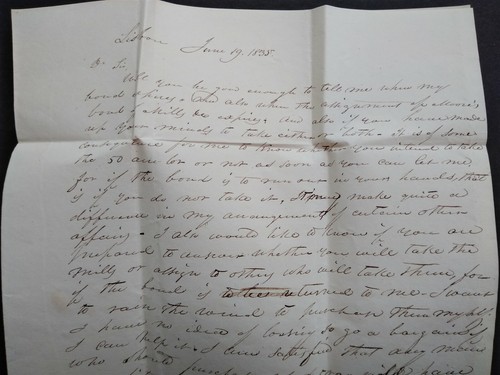 Lisbon June 19. 1835.
Dr Sir
Will you be good enough to tell me when my
bond expires. And also when the assignment of Moore's
bond of Mills &c expires. And also if you have made
up your minds to take either or both. It is of some
consequence for me to know whether you intend to take
the 50 acre lot or not as soon as you can let me
for if the bond is to run out in your hands, that
is if you do not take it, it may make quite a
difference in my arrangement of certain other
affairs. I also would like to know if you are
prepared to answer whether you will take the
mills or assign to others who will take them, for
if the bond is to be returned to me I want
to raise the wind to purchase them myself.
I have no idea of losing so go a bargain if
I can help it. I am satisfied that any man
who should purchase will have